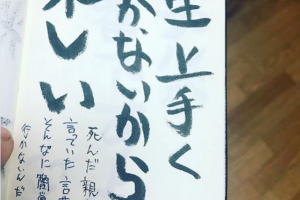 生上手く
かないから
しい
死んだ親
言っていた言葉
そんなに簡単
行かないんだ